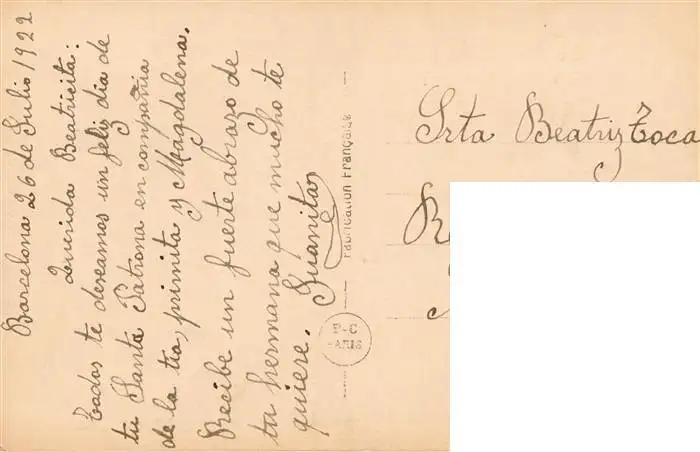 Barcelona 26 de Julio 1922
Querida Beatricita:
Todos te deseamos un feliz dia de
tu Santa Patrona en compañia
de la tia, primita y Magdalena.
Recibe un fuerte abrazo de
tu hermana que mucho te
quiere. Juanita
Fabrication Française
P-C
PARIS
Srta Beatriz Toca